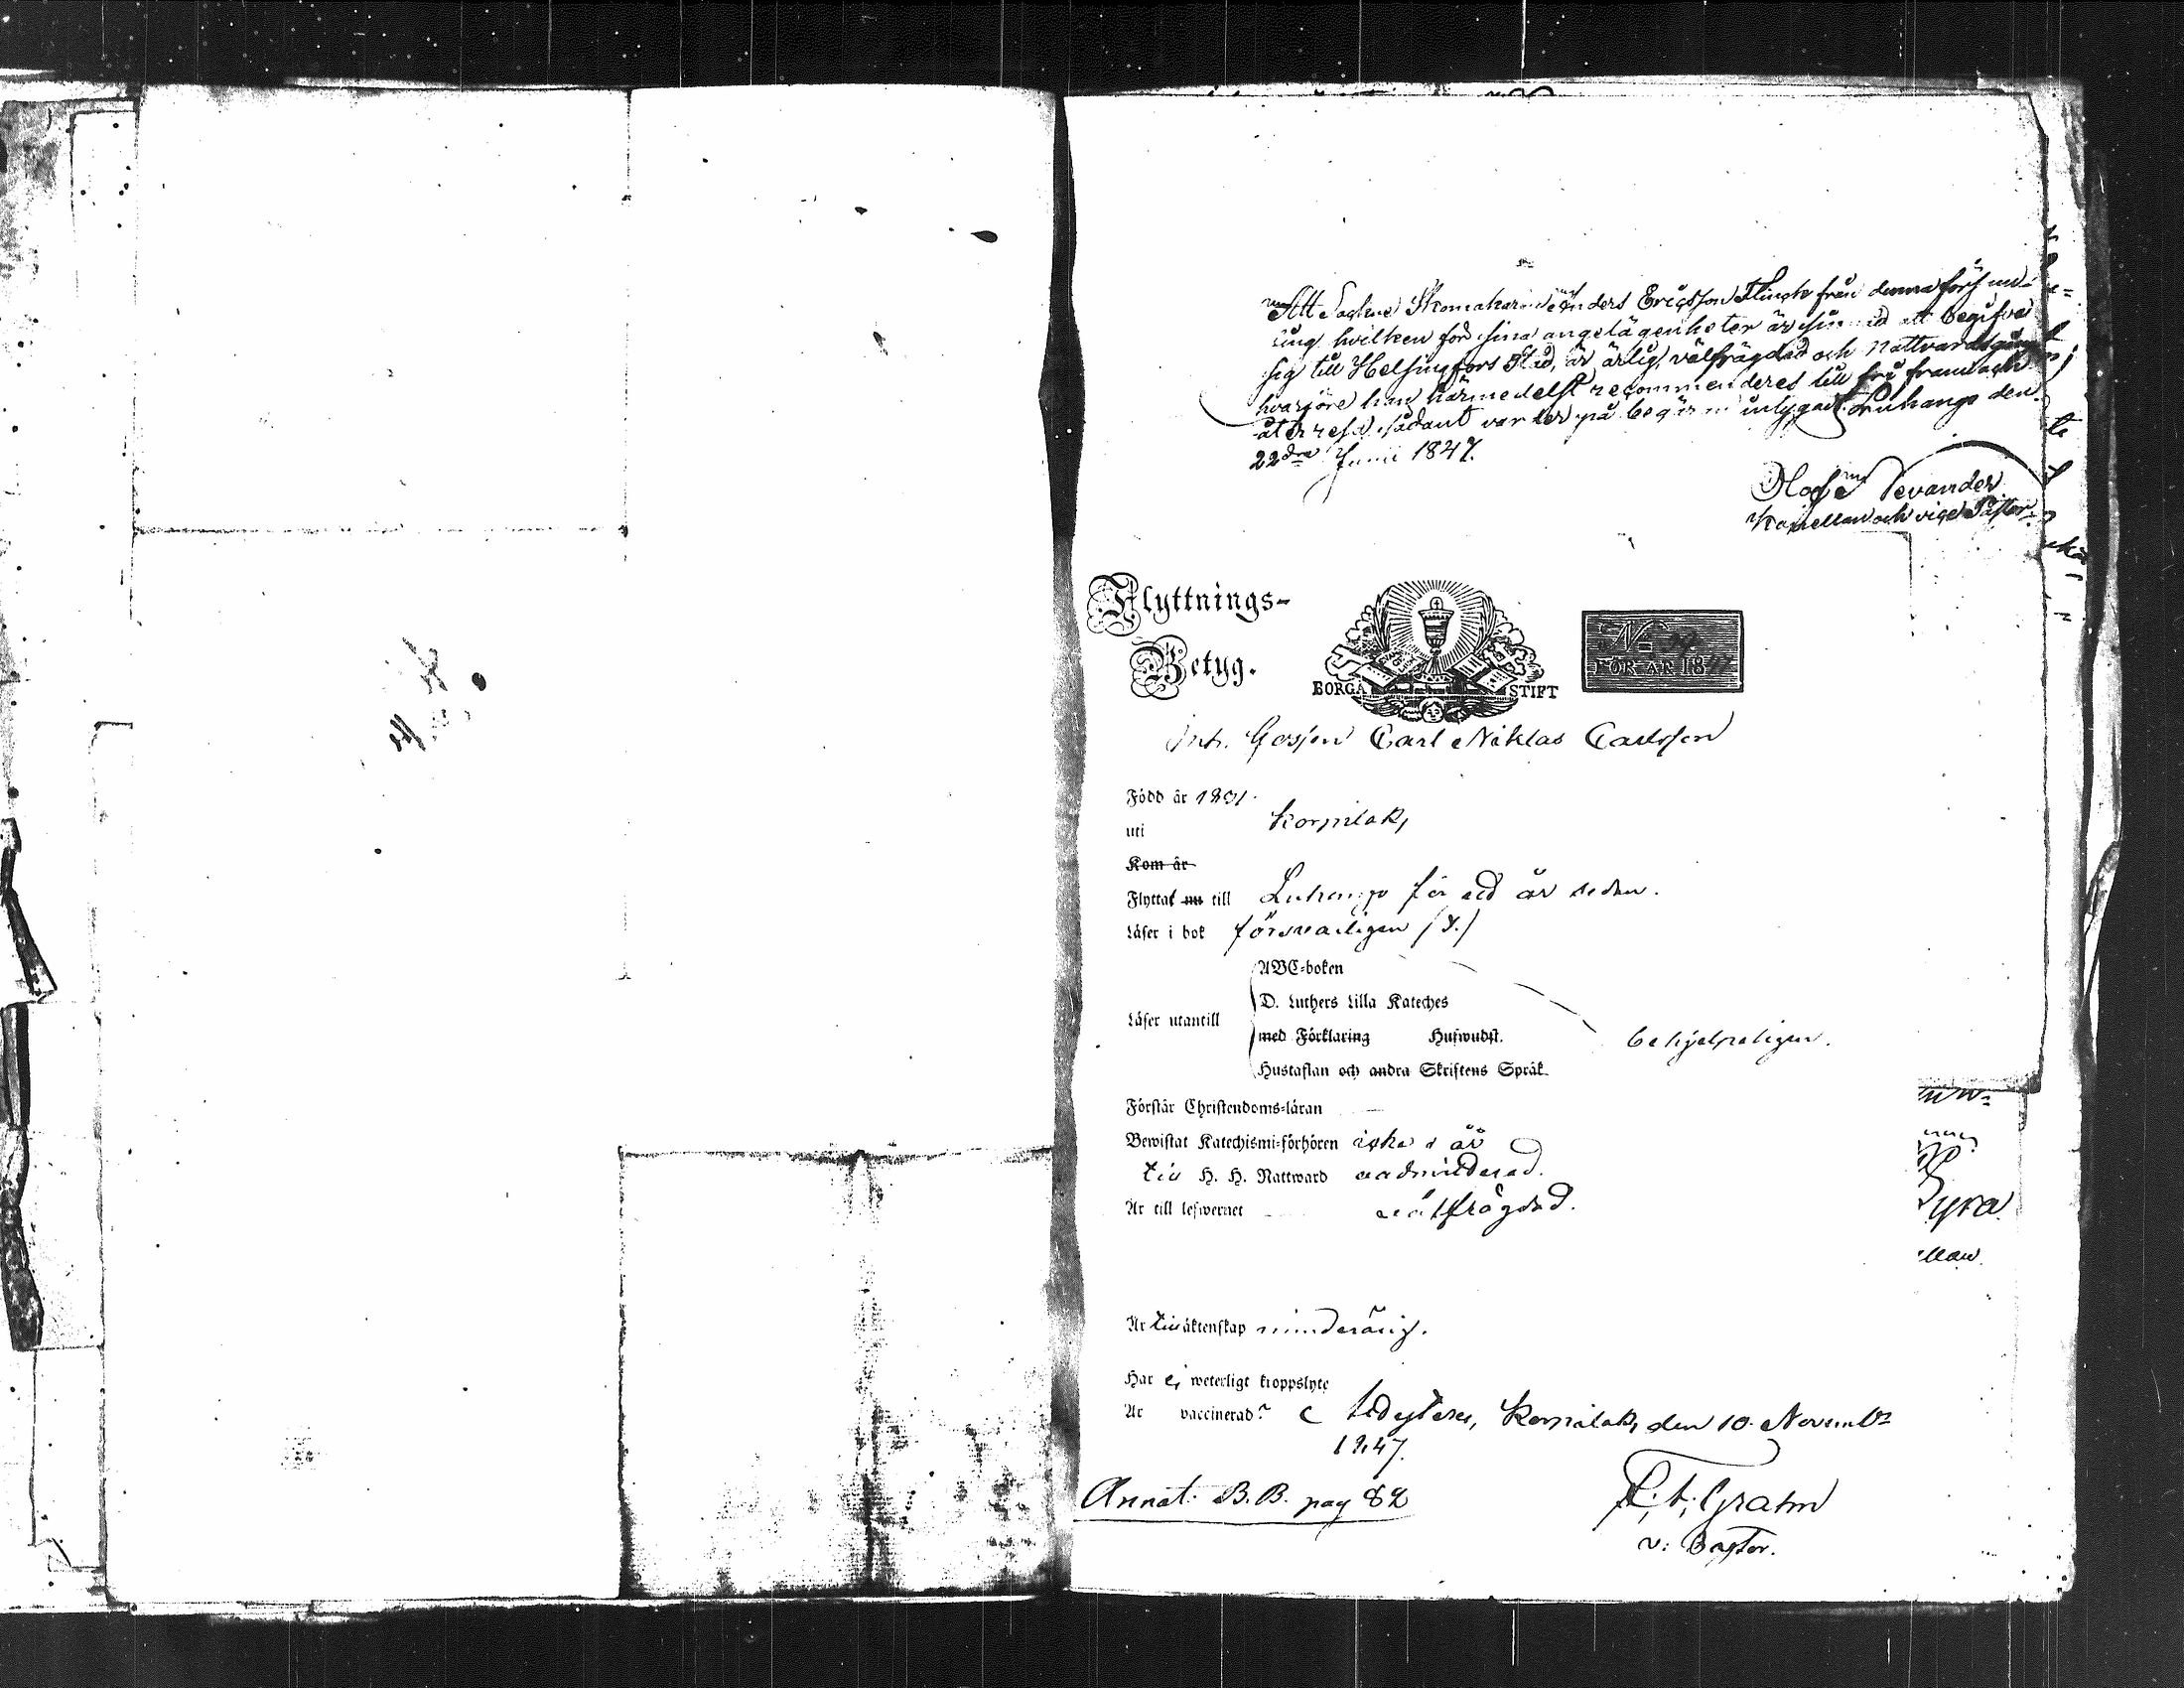 Att Sockne Skomakaren Anders Ericsson Flinck från denna försam-
ling hvilken för sina angelägenheter är sinnad att begifva
sig till Helsingfors Stad, är ärlig, välfrägdad och Nattvardsgång
hvarföre han härmedelst recommenderes till fri fram och
återresa sådant varder på begäran intygadt. Luhango den
22dra Junii 1847.
Levander
Kapellan och vice Pastor
Flyttnings-
Betyg.
BORGÅ STIFT
No
FÖR ÅR 1847
Inh. Gossen Carl Niklas Carlsson
Född år 1831.
uti Korpilaks
Kom år
Flyttat nu till Luhango för år sedan.
Läser i bok försvarligen
ABC-boken
D. Luthers Lilla Kateches
Läser utantill
med Förklaring Hufwudst.
behjelpeligen.
Hustaflan och andra Skriftens Språk
Förstår Christendoms-läran
Bewistat Katechismi-förhören icke i år
till H. H. Nattward oadmitterad.
Är till lefwernet välfrägdad.
Är till äktenskap minderårig.
Har ej weterligt kroppslyte
Är vaccinerad? Korpilaks den 10 Novemb
1847.
Annot. B.B. pag 82
Grahn
v: Pastor.